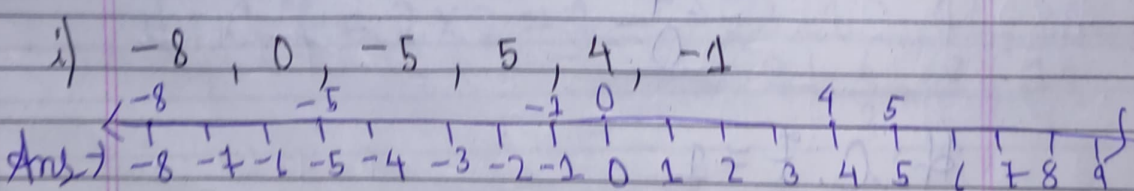 i) -8 , 0 , -5 , 5 , 4 , -1
-8 -5 -1 0 4 5
Ans→ -8 -7 -6 -5 -4 -3 -2 -1 0 1 2 3 4 5 6 7 8 9